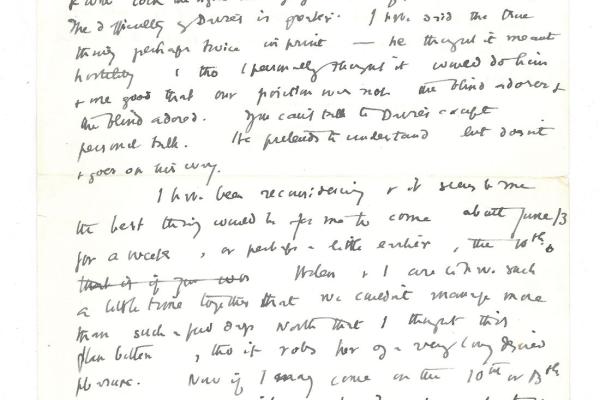 The difficulty of Davies is greater. I have said the true
thing perhaps twice in print — he thought it meant
hostility & tho I personally thought it would do him
& me good that our position was not the blind adorer &
the blind adored. You can't talk to Davies except
personal talk. He pretends to understand but doesn't
& goes on his way.
I have been reconsidering & it seems to me
the best thing would be for me to come about June 13
for a week, or perhaps a little earlier, the 10th.
that is if you were Helen & I are to have such
a little time together that we couldn't manage more
than such a few days North that I thought this
plan better, tho it robs her of a very long desired
pleasure. Now if I may come on the 10th or 13th